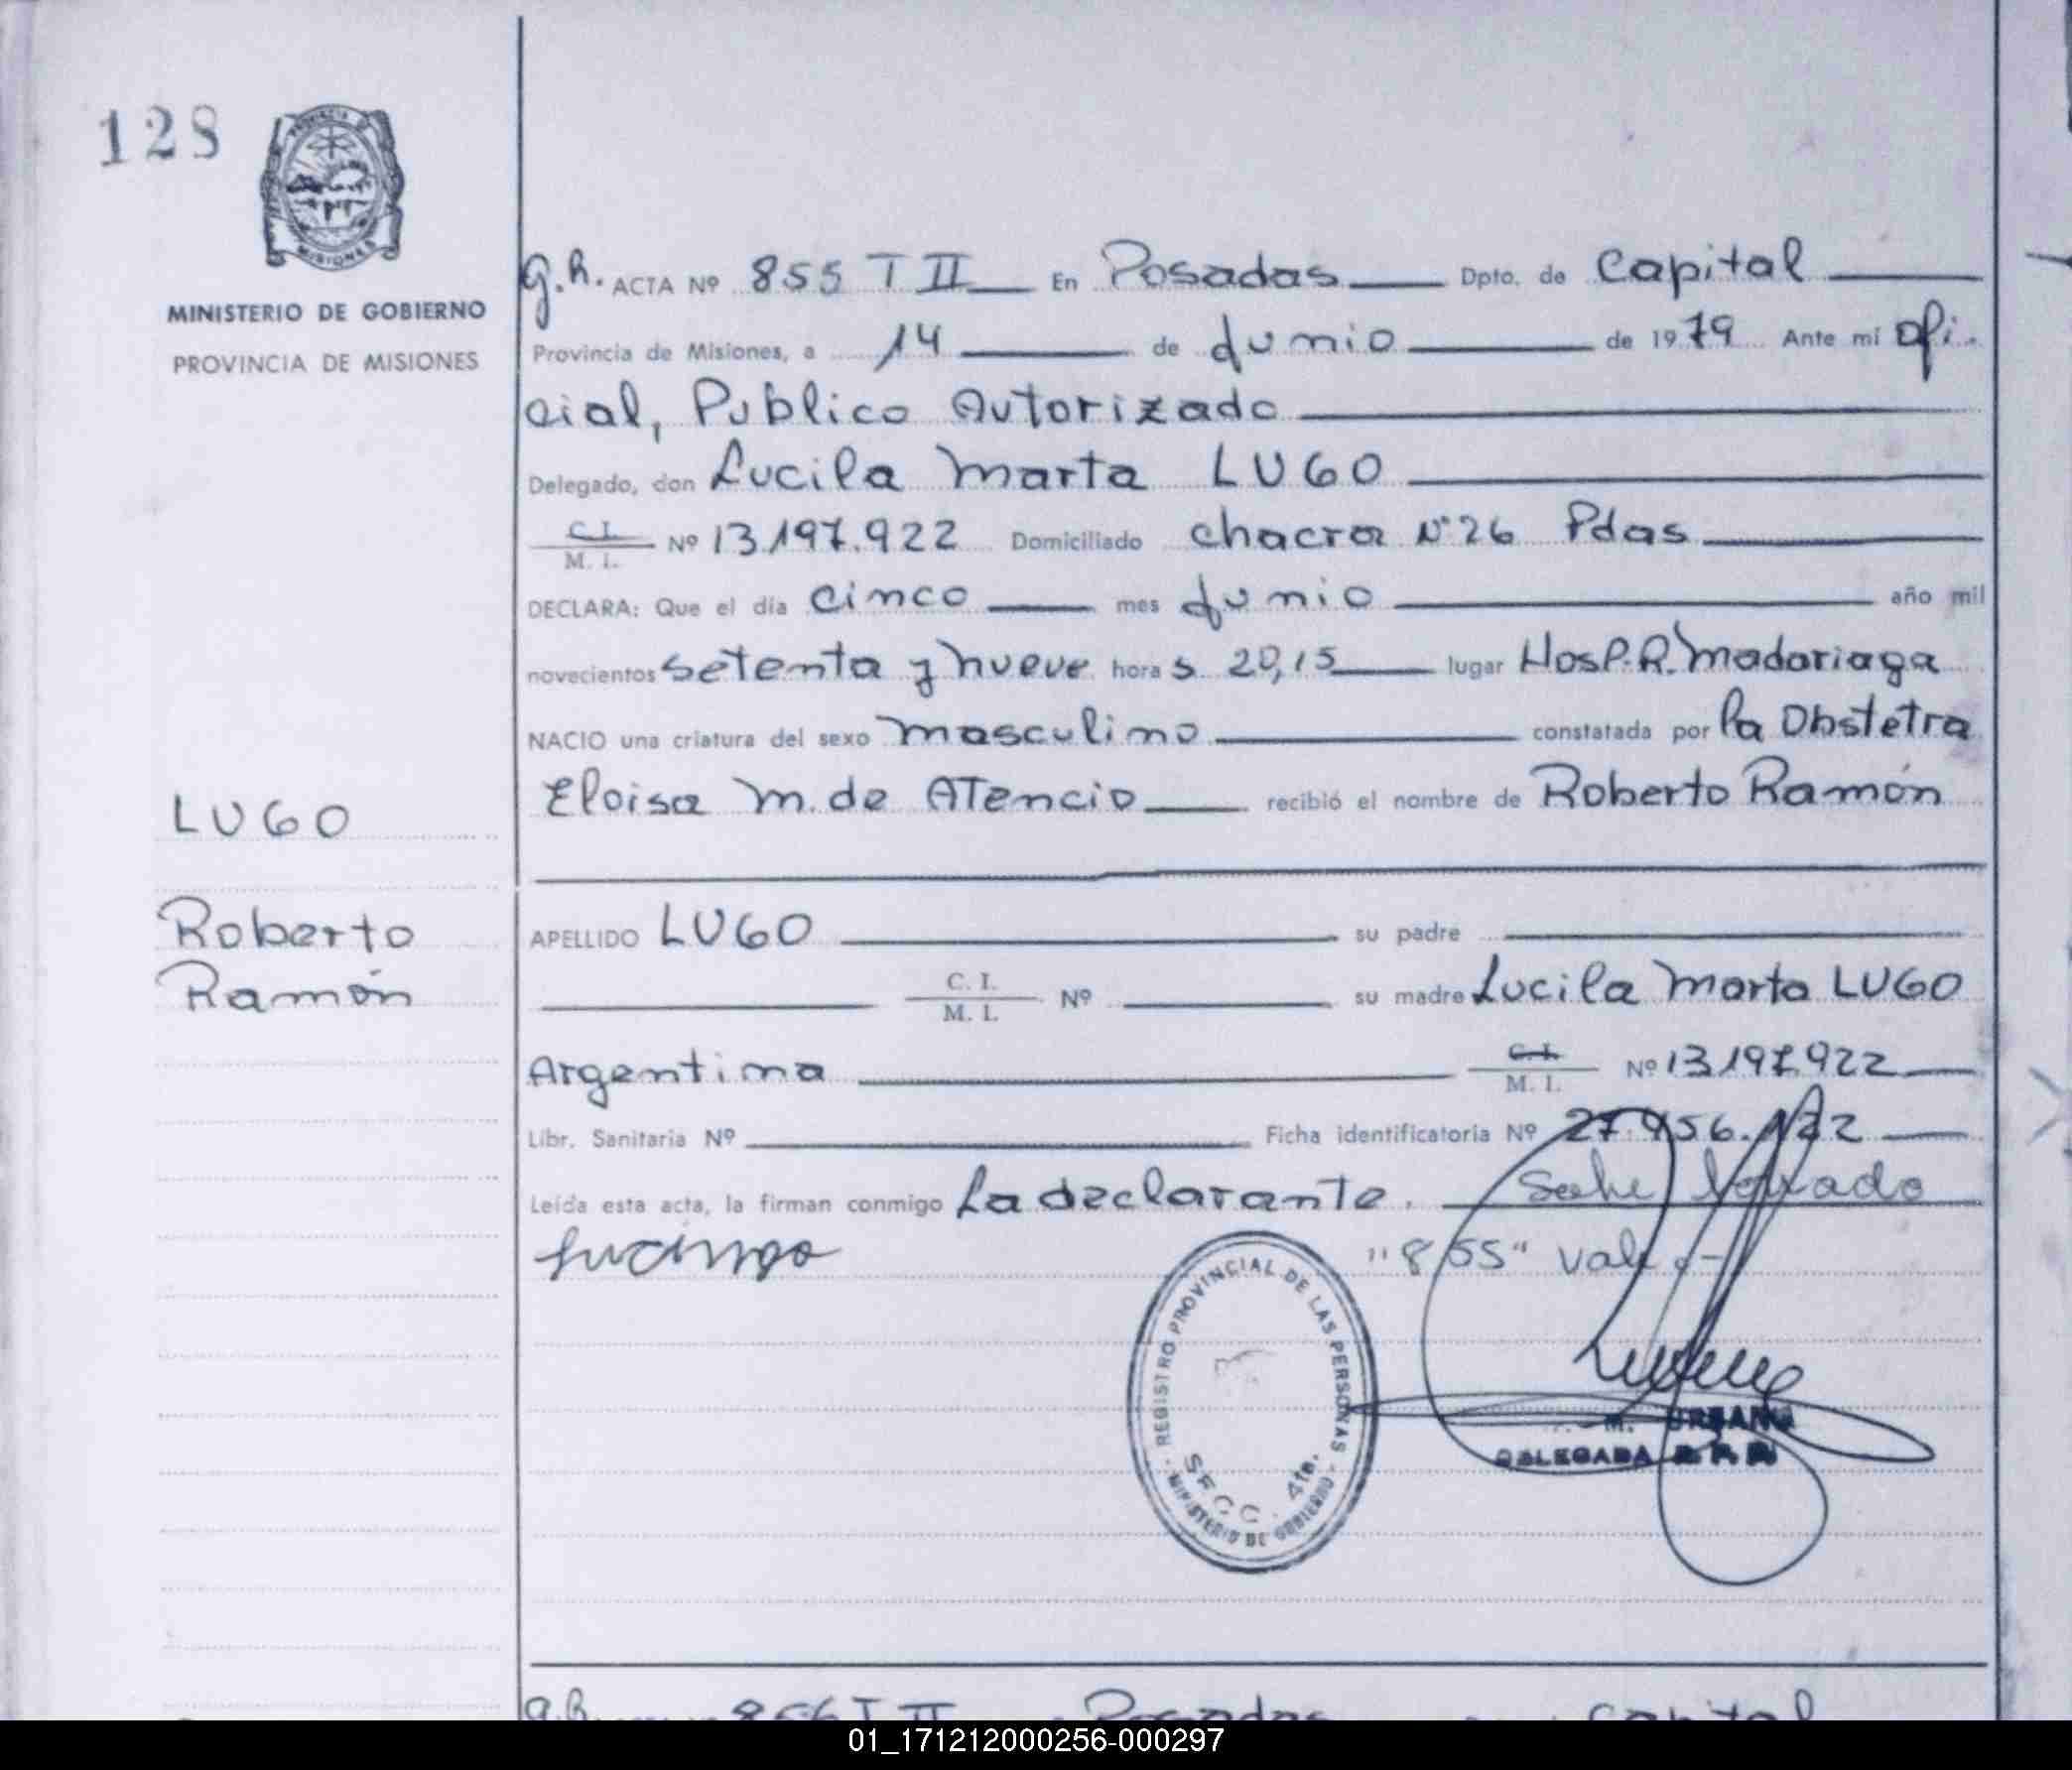 128
MINISTERIO DE GOBIERNO
PROVINCIA DE MISIONES
g.h. ACTA Nº 855 T II En Posadas Dpto. de Capital
Provincia de Misiones, a 14 de Junio de 1979 Ante mi ofi.
cial, Publico Autorizado
Delegado, don Lucila Marta LUGO
C. I.
M. I. Nº 13.197.922 Domiciliado chacra Nº 26 Pdas
DECLARA: Que el día cinco mes Junio año mil
novecientos setenta y nueve hora s 20,15 lugar Hosp. R. Madariaga
NACIO una criatura del sexo masculino constatada por la Obstetra
Eloisa M. de Atencio recibió el nombre de Roberto Ramón
LUGO
Roberto
Ramón
APELLIDO LUGO su padre
C. I.
M. I. Nº su madre Lucila Marta LUGO
Argentina C. I.
M. I. Nº 13.197.922
Libr. Sanitaria Nº Ficha identificatoria Nº 27.456.
Leída esta acta, la firman conmigo La declarante.
"855" vale.-
REGISTRO PROVINCIAL DE LAS PERSONAS
SECC. 4ta.
MINISTERIO DE GOBIERNO
M. URBANO
DELEGADA
856 T II Posadas Capital
01_171212000256-000297